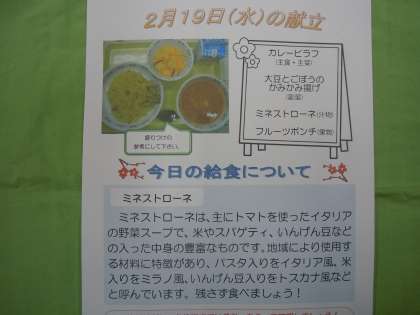 2月19日(水)の献立
カレーピラフ
(主食・主菜)
大豆とごぼうの
かみかみ揚げ
(副菜)
ミネストローネ(汁物)
フルーツポンチ(果物)
盛りつけの
参考にして下さい。
今日の給食について
ミネストローネ
ミネストローネは、主にトマトを使ったイタリア
の野菜スープで、米やスパゲティ、いんげん豆など
の入った中身の豊富なものです。地域により使用す
る材料に特徴があり、パスタ入りをイタリア風、米
入りをミラノ風、いんげん豆入りをトスカナ風など
と呼んでいます。残さず食べましょう！